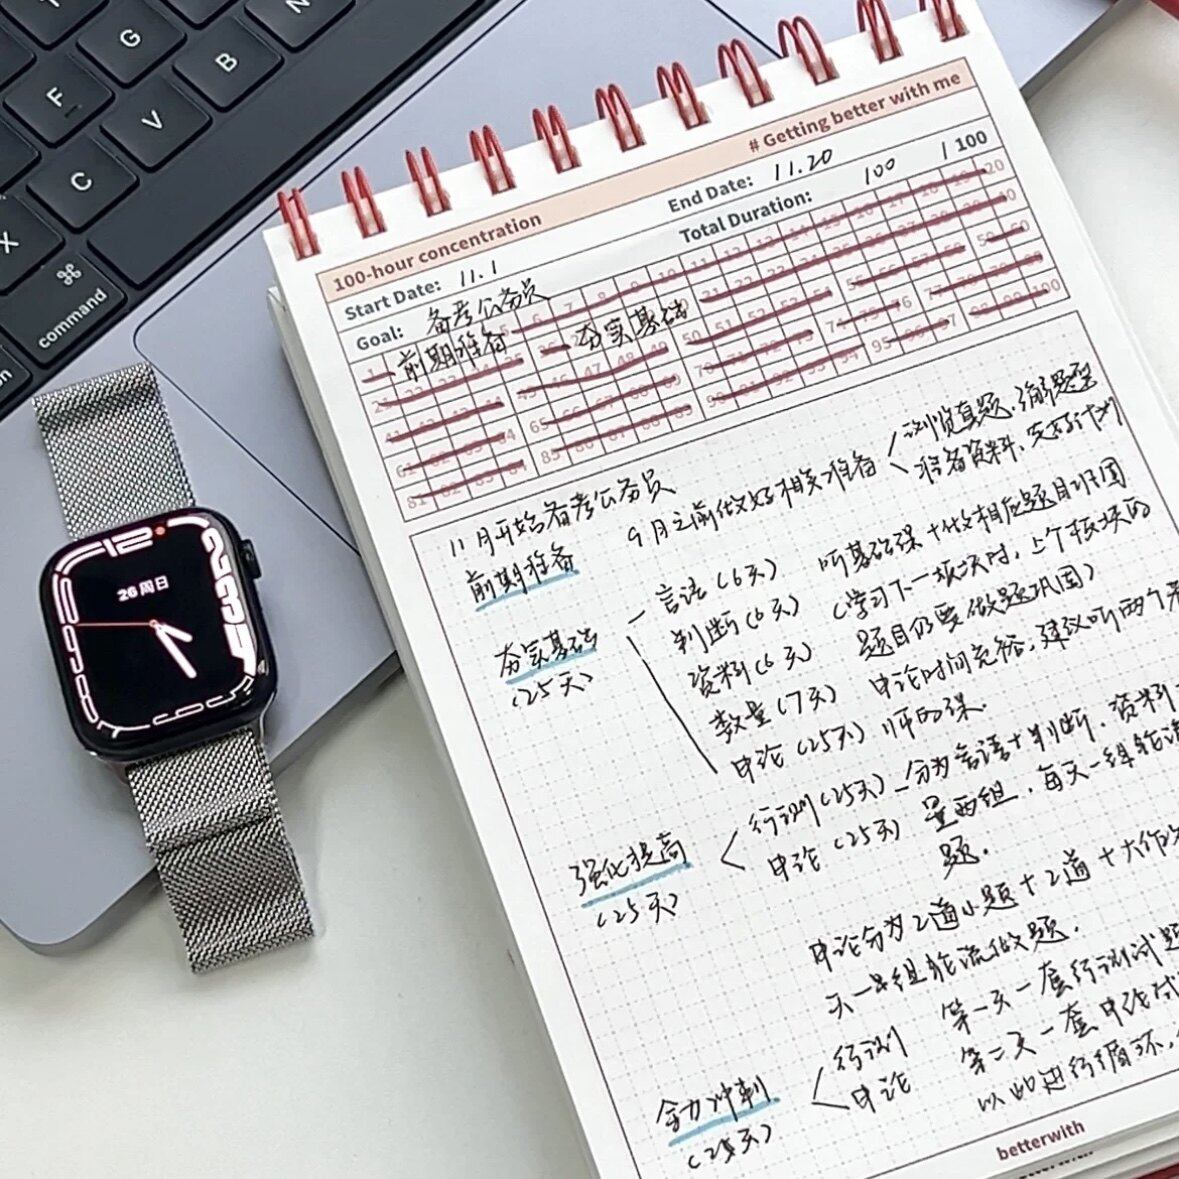 G
N
F
V
B
X
C
⌘
command
# Getting better with me
100-hour concentration
Start Date: 11.1
End Date: 11.20
Goal: 备考公务员
Total Duration: 100 / 100
前期准备
夯实基础
11月开始备考公务员
前期准备
9月之前做好相关准备
浏览真题,了解题型
准备资料,完成计划
夯实基础
(25天)
言语(6天)
判断(6天)
资料(6天)
数量(7天)
申论(25天)
听基础课+做相应题目巩固
(学习下一板块时,上个板块的
题目仍要做题巩固)
申论时间充裕,建议听两个老
师的课.
强化提高
(25天)
行测(25天)
申论(25天)
分为言语+判断,资料+
量两组,每天一组轮流
题.
申论分为2道小题+2道+大作
天一组轮流做题.
全力冲刺
(25天)
行测
申论
第一天一套行测试题
第二天一套申论试
以此进行循环,
betterwith
26 周日
12